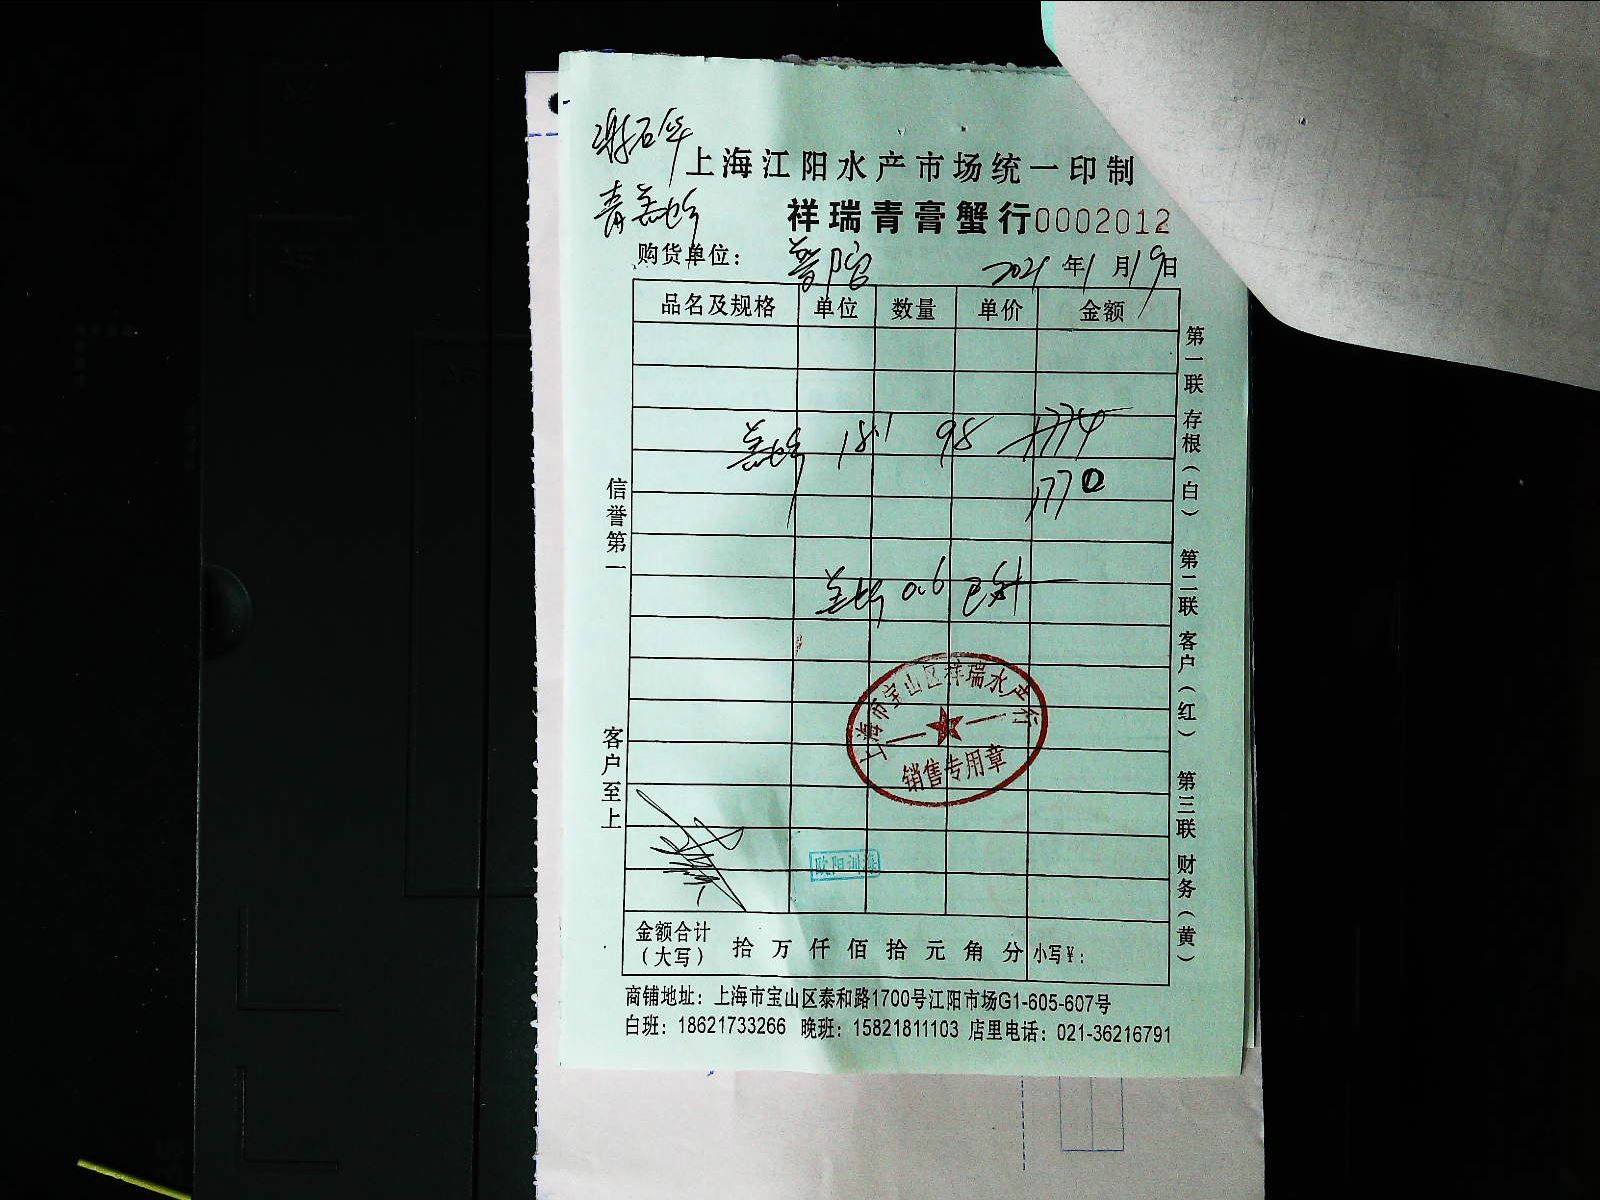 上海江阳水产市场统一印制
祥瑞青膏蟹行0002012
购货单位: 普陀 2021年1月19日
品名及规格 单位 数量 单价 金额
18.1 98 1774
1770
0.6 已补
上海市宝山区祥瑞水产行
销售专用章
欧阳训
金额合计(大写) 拾 万 仟 佰 拾 元 角 分 小写¥:
商铺地址: 上海市宝山区泰和路1700号江阳市场G1-605-607号
白班: 18621733266 晚班: 15821811103 店里电话: 021-36216791
信誉第一
客户至上
第一联 存根(白) 第二联 客户(红) 第三联 财务(黄)